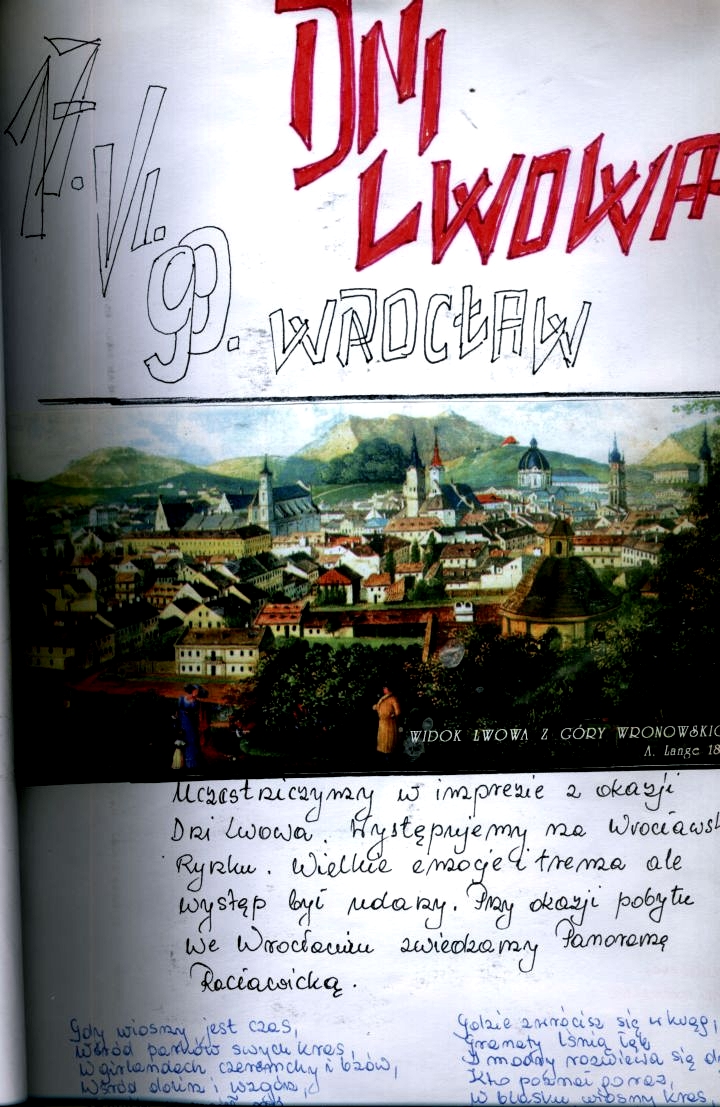 DNI
LWOWA
17.VI.
99. WROCŁAW
WIDOK LWOWA Z GÓRY WRONOWSKIC
A. Lange 18
Uczestniczymy w imprezie z okazji
Dni Lwowa. Występujemy na Wrocławsk
Rynku. Wielkie emocje i trema ale
występ był udany. Przy okazji pobytu
we Wrocławiu zwiedzamy Panoramę
Racławicką.
Gdy wiosny jest czas,
Wśród parków swych kras,
W girlandach, czeremchy i bzów,
Wśród dolin i wzgórz,
Gdzie zwrócisz się w krąg,
Granaty lśnią łąk
I modry rozwiewa się
Kto poznał go raz,
W blasku wiosny kras,